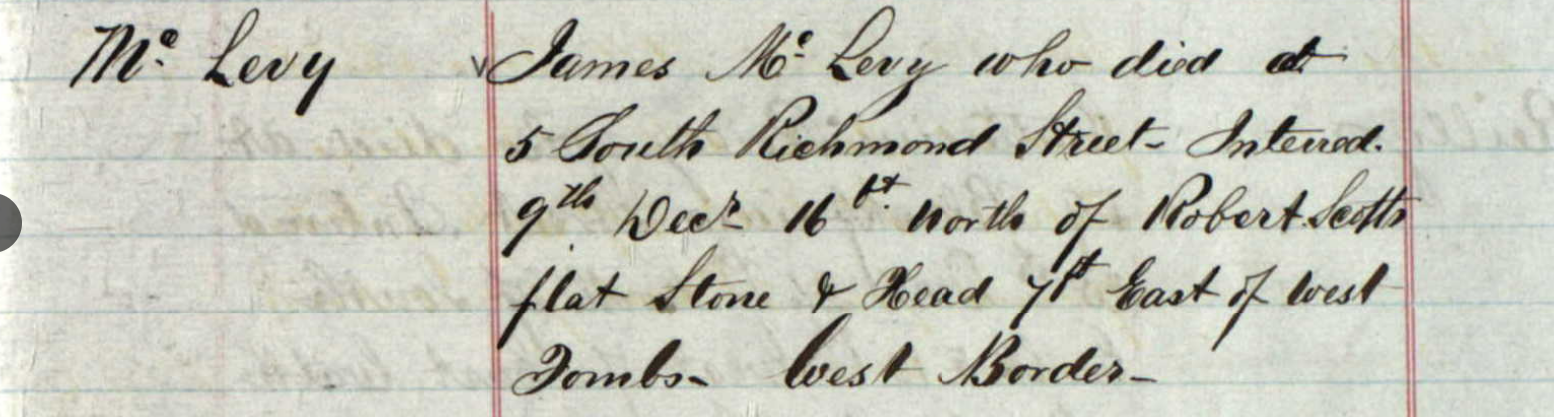 Mc Levy
James Mc Levy who died at
5 South Richmond Street - Interred.
9th Decr 16 ft. North of Robert Scotts
flat Stone & Head 7ft East of West
Tombs - West Border -